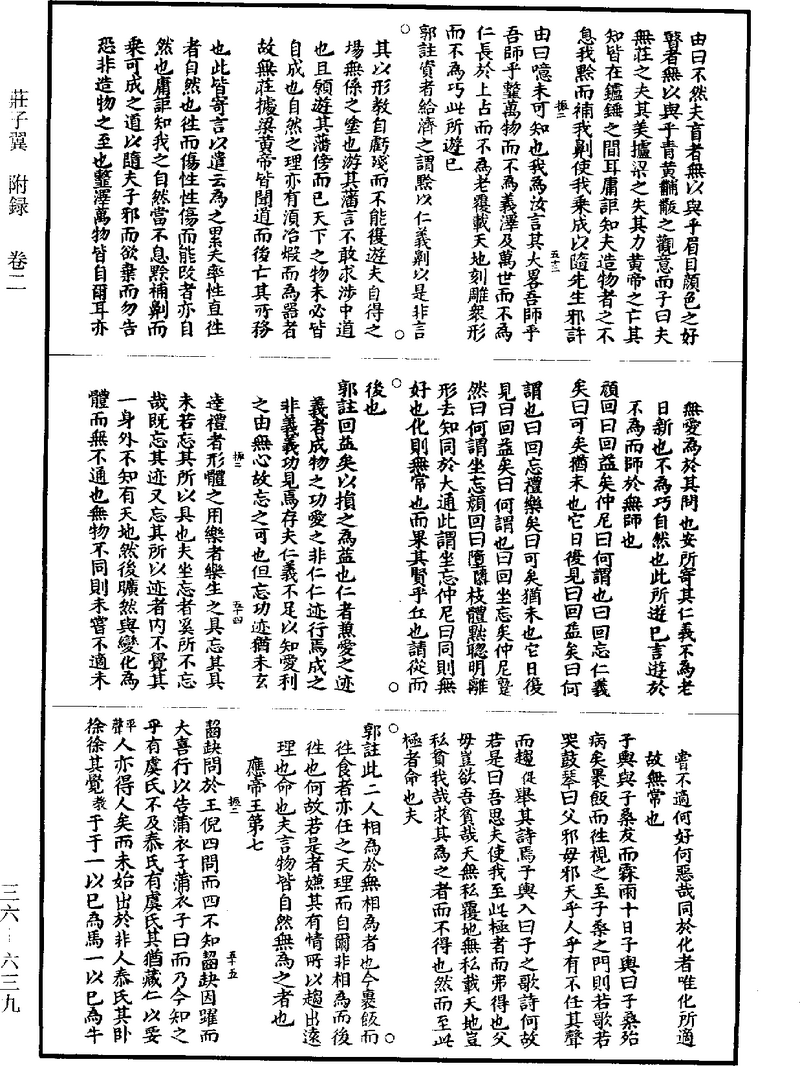 莊子翼　附録　卷二
三六—六三九
由曰不然夫盲者無以與乎眉目顔色之好
瞽者無以與乎青黄黼黻之觀意而子曰夫
無莊之夫其美據梁之失其力黄帝之亡其
知皆在鑪錘之間耳庸詎知夫造物者之不
息我黥而補我劓使我乗成以隨先生邪許
由曰噫未可知也我爲汝言其大畧吾師乎
吾師乎䪠萬物而不爲義澤及萬世而不爲
仁長於上古而不爲老覆載天地刻雕衆形
而不爲巧此所遊已
郭註資者給濟之謂黥以仁義劓以是非言
其以形教自虧殘而不能復遊夫自得之
場無係之塗也游其藩言不敢求涉中道
也且願遊其藩傍而已天下之物未必皆
自成也自然之理亦有須冶煅而爲器者
故無莊據梁黄帝皆聞道而後亡其所務
也此皆寄言以遣云爲之累夫率性直往
者自然也往而傷性性傷而能改者亦自
然也庸詎知我之自然當不息黥補劓而
乗可成之道以隨夫子邪而欲棄而勿告
恐非造物之至也䪠澤萬物皆自爾耳亦
無愛爲於其間也安所寄其仁義不爲老
日新也不爲巧自然也此所遊已言遊於
不爲而師於無師也
顔回曰回益矣仲尼曰何謂也曰回忘仁義
矣曰可矣猶未也它日復見曰回益矣曰何
謂也曰回忘禮樂矣曰可矣猶未也它日復
見曰回益矣曰何謂也曰回坐忘矣仲尼蹵
然曰何謂坐忘顔回曰墮枝體黜聰明離
形去知同於大通此謂坐忘仲尼曰同則無
好也化則無常也而果其賢乎丘也請從而
後也
郭註回益矣以損之爲益也仁者兼愛之迹
義者成物之功愛之非仁仁迹行焉成之
非義義功見焉存夫仁義不足以知愛利
之由無心故忘之可也但忘功迹猶未玄
達禮者形體之用樂者樂生之具忘其具
未若忘其所以具也夫坐忘者奚所不忘
哉既忘其迹又忘其所以迹者内不覺其
一身外不知有天地然後曠然與變化爲
體而無不通也無物不同則未嘗不適未
嘗不適何好何惡哉同於化者唯化所適
故無常也
子輿與子桑友而霖雨十日子輿曰子桑殆
病矣裹飯而往視之至子桑之門則若歌若
哭鼓琴曰父邪母邪天乎人乎有不任其聲
而趨促舉其詩焉子輿入曰子之歌詩何故
若是曰吾思夫使我至此極者而弗得也父
母豈欲吾貧哉天無私覆地無私載天地豈
私貧我哉求其爲之者而不得也然而至此
極者命也夫
郭註此二人相爲於無相爲者也今裹飯而
往食者亦任之天理而自爾非相爲而後
往也何故若是者嫌其有情所以趨出遠
理也命也夫言物皆自然無爲之者也
應帝王第七
齧缺問於王倪四問而四不知齧缺因躍而
大喜行以告蒲衣子蒲衣子曰而乃今知之
乎有虞氏不及泰氏有虞氏其猶藏仁以要
平聲人亦得人矣而未始出於非人泰氏其卧
徐徐其覺教于于一以已爲馬一以已爲牛
振二
五十三
振二
五十四
振二
五十五